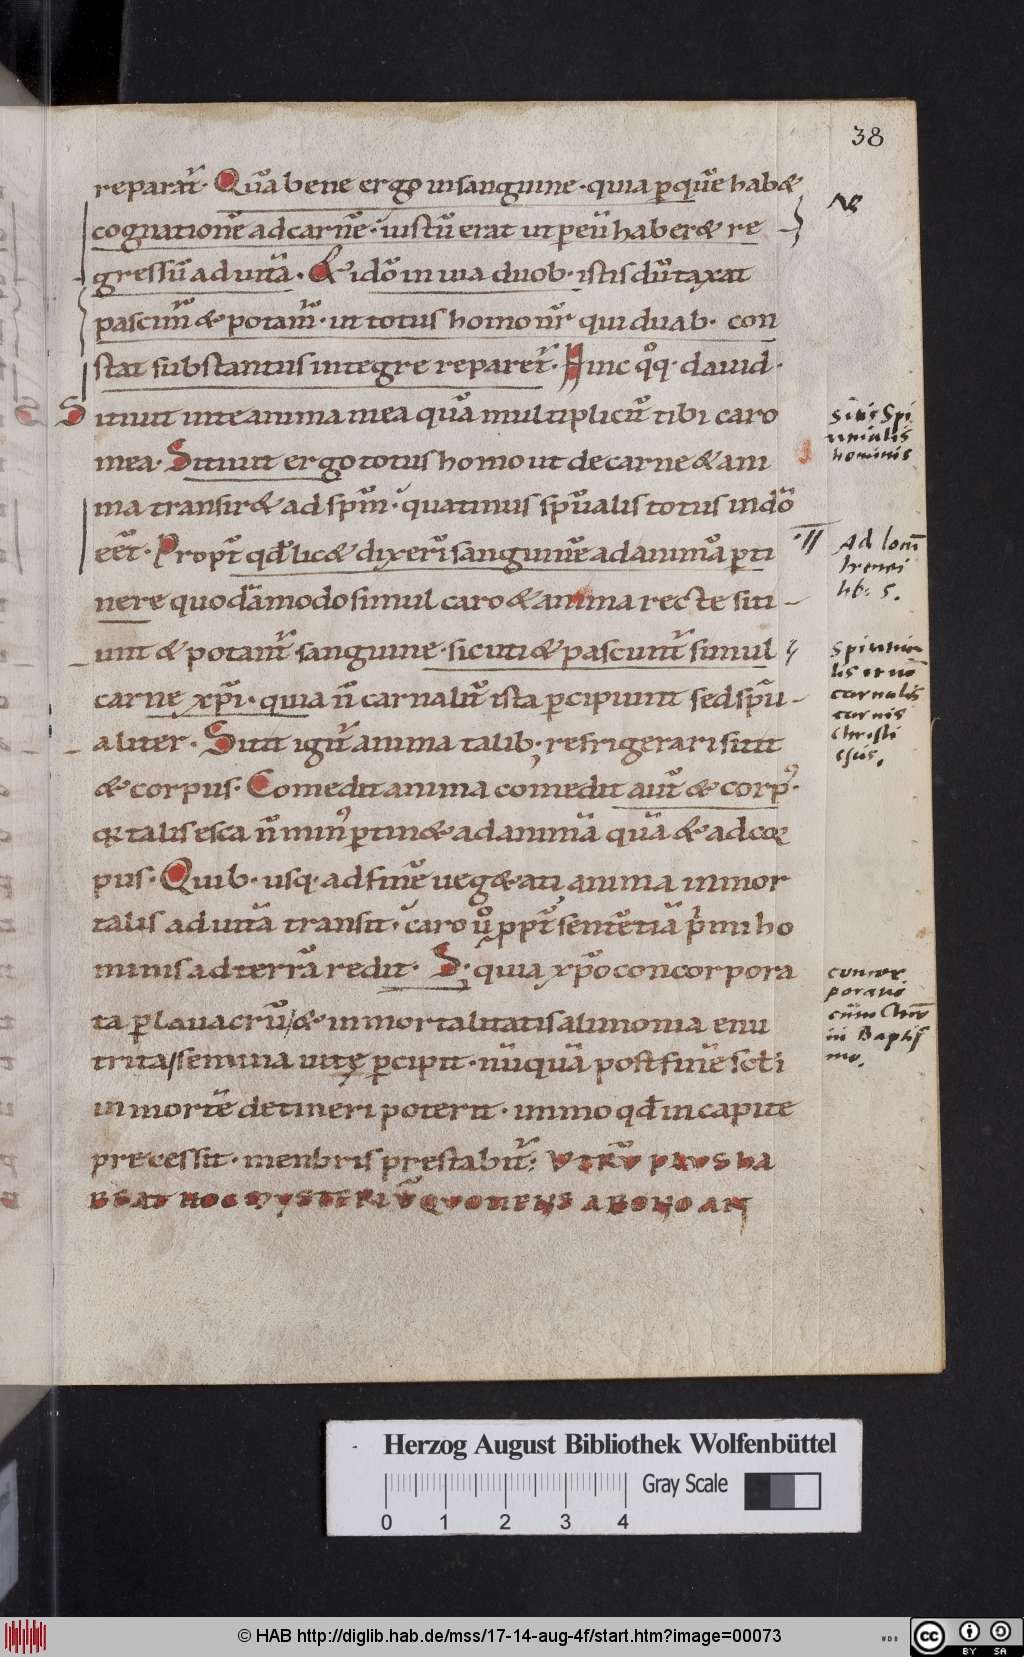 38
reparat᷑. Quā bene ergo in sanguine. quia ꝑ quē habet
cognationē ad carnē. iustū erat ut ꝑ eū haberet re
gressū ad uitā. Et idō in uia duob. istis dūtaxat
pascim᷑ et potam᷑. ut totus homo nr̄ qui duab. con
stat substantiis integre reparet᷑. Hinc qͦq. dauid.
Sitiuit in te anima mea quā multiplicit̄ tibi caro
mea. Sitiuit ergo totus homo ut de carne et ani
ma transiret ad spm̄. quatinus spūalis totus in dō
eēt. Propt̄ qđ licet dixerī sanguinē ad animā ꝑti
nere quodāmodo simul caro et anima recte siti
unt et potant᷑ sanguine. sicuti et pascunt᷑ simul
carne xpī. quia n̄ carnalit̄ ista ꝑcipiunt sed spū
aliter. Sitit igit̄ anima talib; refrigerari sitit
et corpus. Comedit anima comedit aut̄ et corp᷒.
qr talis esca n̄ min᷒ ꝑtinet ad animā quā et ad cor
pus. Quib. usq. ad finē uegetati anima inmor
talis ad uitā transit. caro ūͦ ꝓpt̄ sentētiā pͥmi ho
minis ad terrā redit. S; quia xpō concorpora
ta ꝑ lauacrū / et inmortalitatis alimonia enu
trita / semina uitę ꝑcipit. nūquā post finē scłi
in morte detineri poterit. immo qđ in capite
precessit. menbris prestabit᷑. VTRŪ PLVS HA
BEAT HOC MYSTERIŪ QVOTIENS A BONO AN
Sitis Spi
ritualis
hominis
Ad locū
Irenei
lib: 5.
Spiritua
lis et nō
carnalis
carnis
Christi
esus.
concor
poratio
cum Chrō
in Baptis
mo.
Herzog August Bibliothek Wolfenbüttel
Gray Scale
0 1 2 3 4
© HAB http://diglib.hab.de/mss/17-14-aug-4f/start.htm?image=00073
WDB
cc BY SA